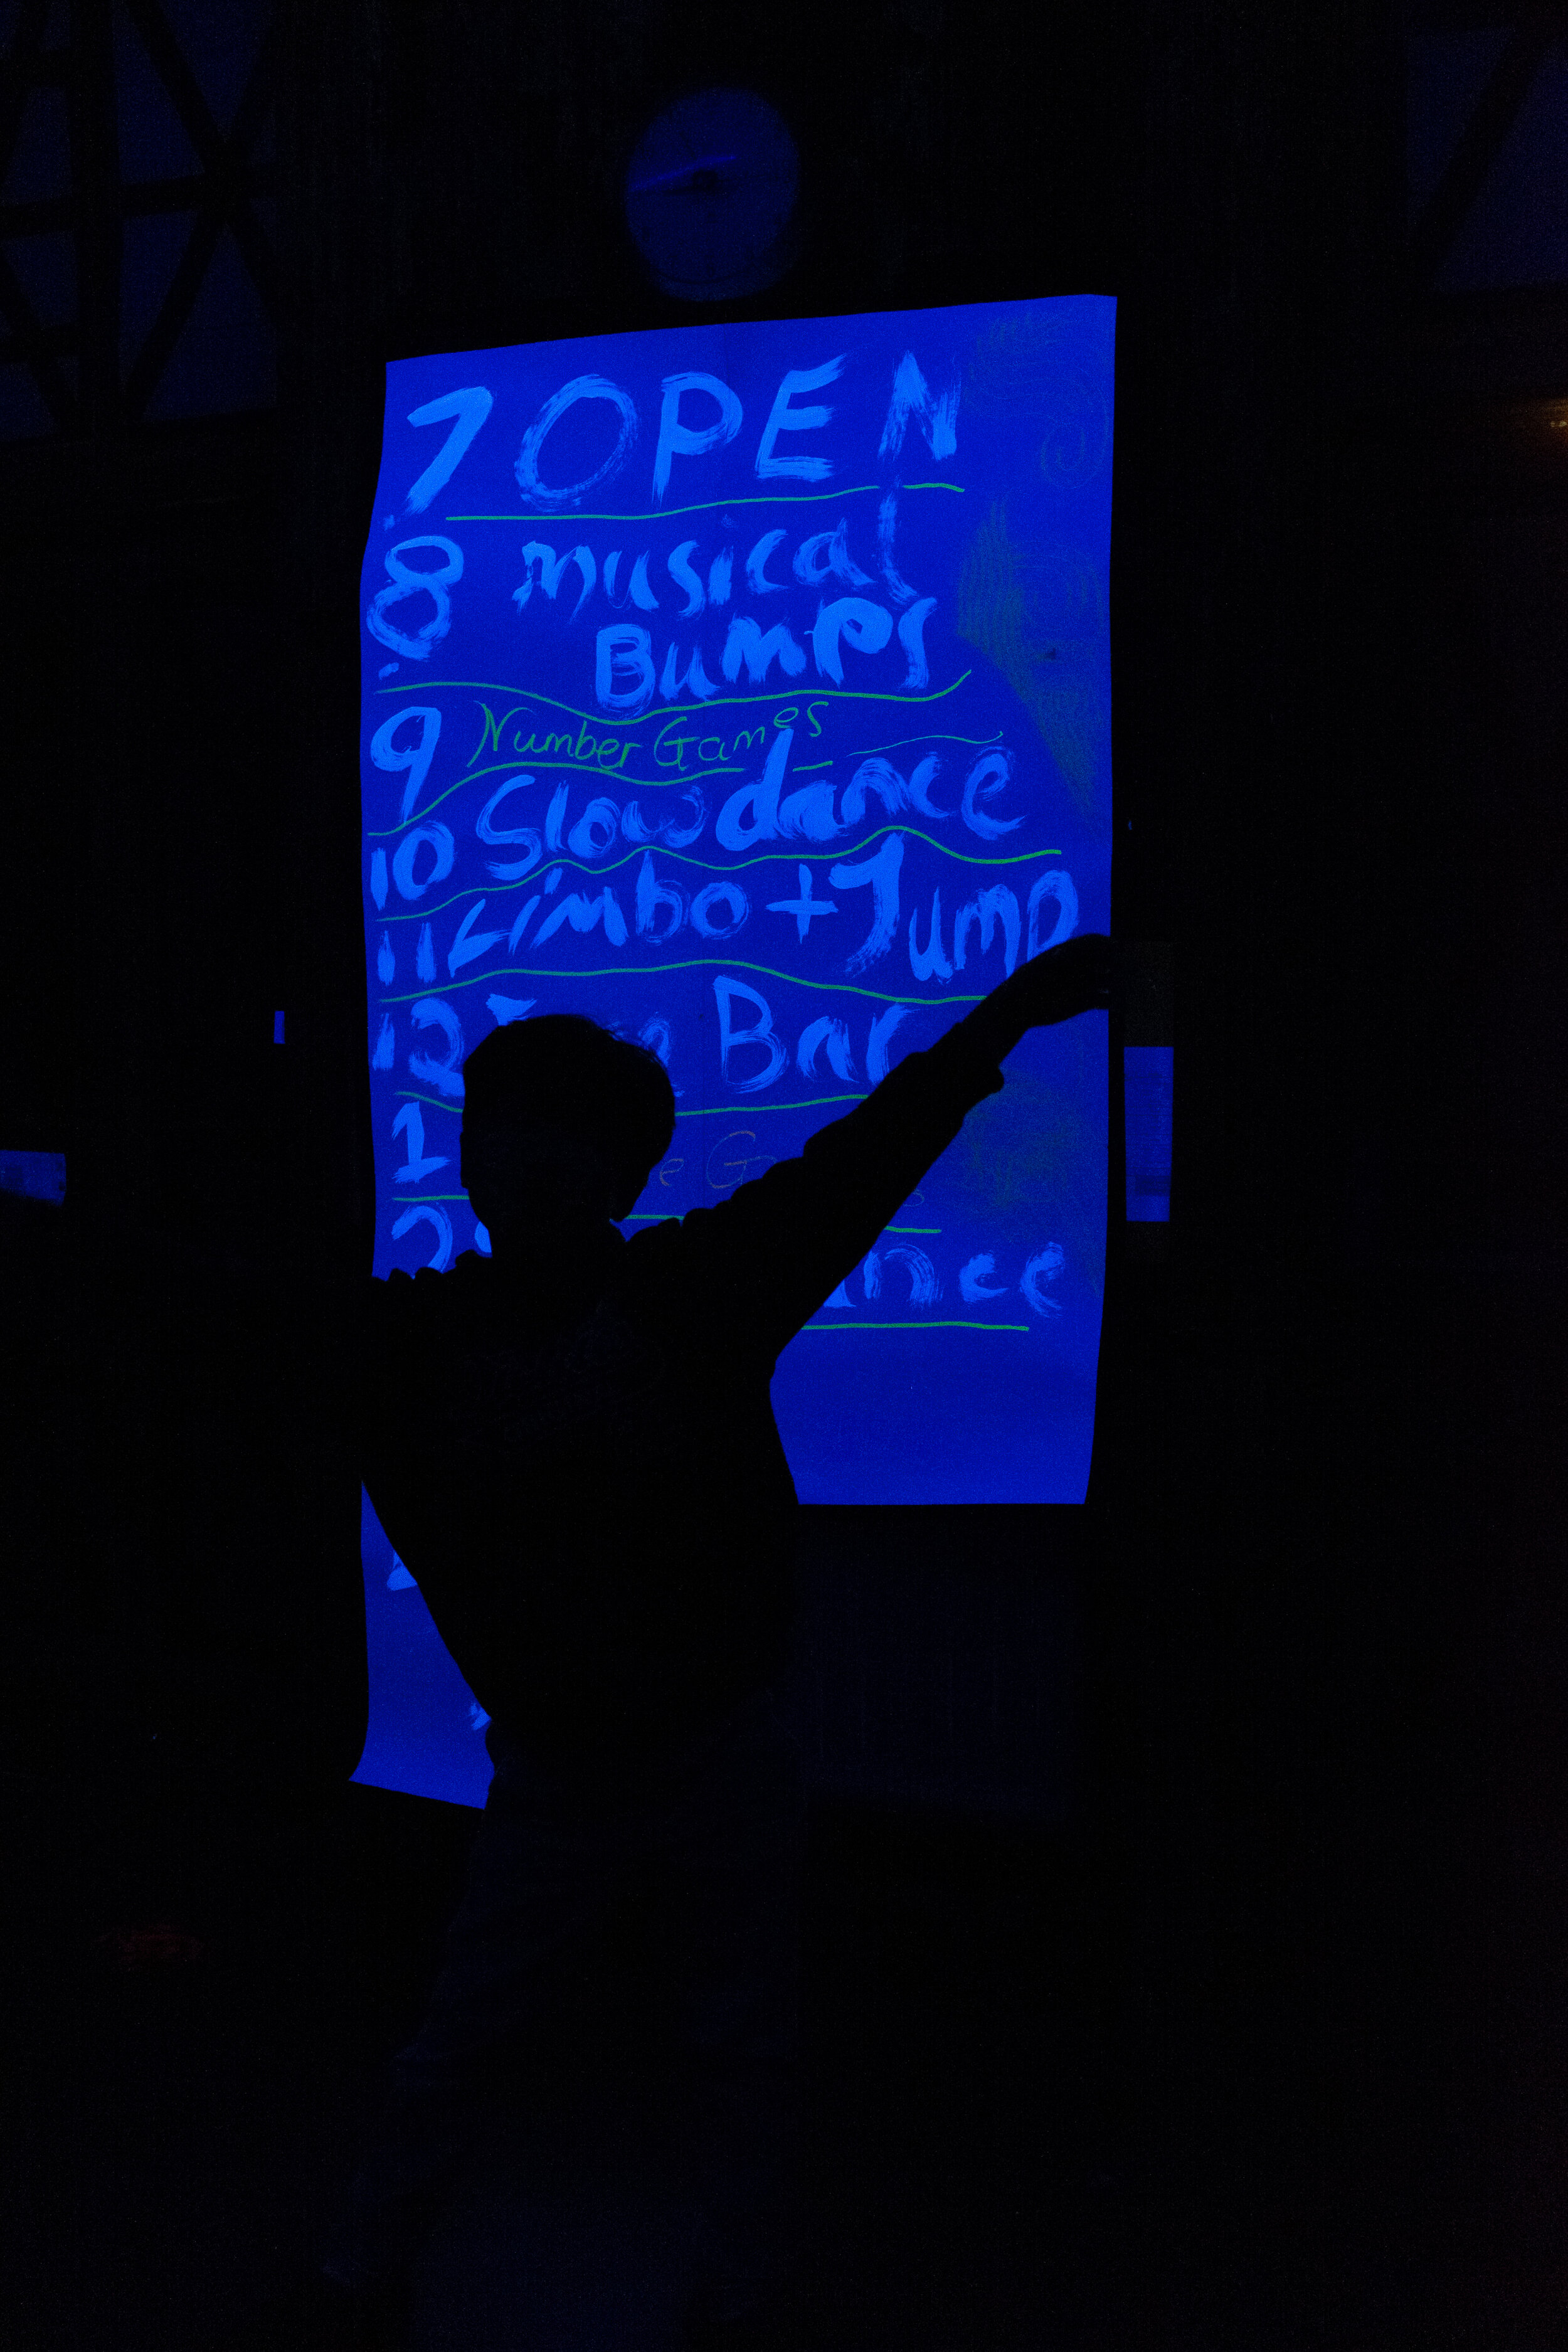 7 OPEN
8 musical
Bumps
9 Number Games
10 Slow dance
11 Limbo + Jump
12 Bar
1
2 nce